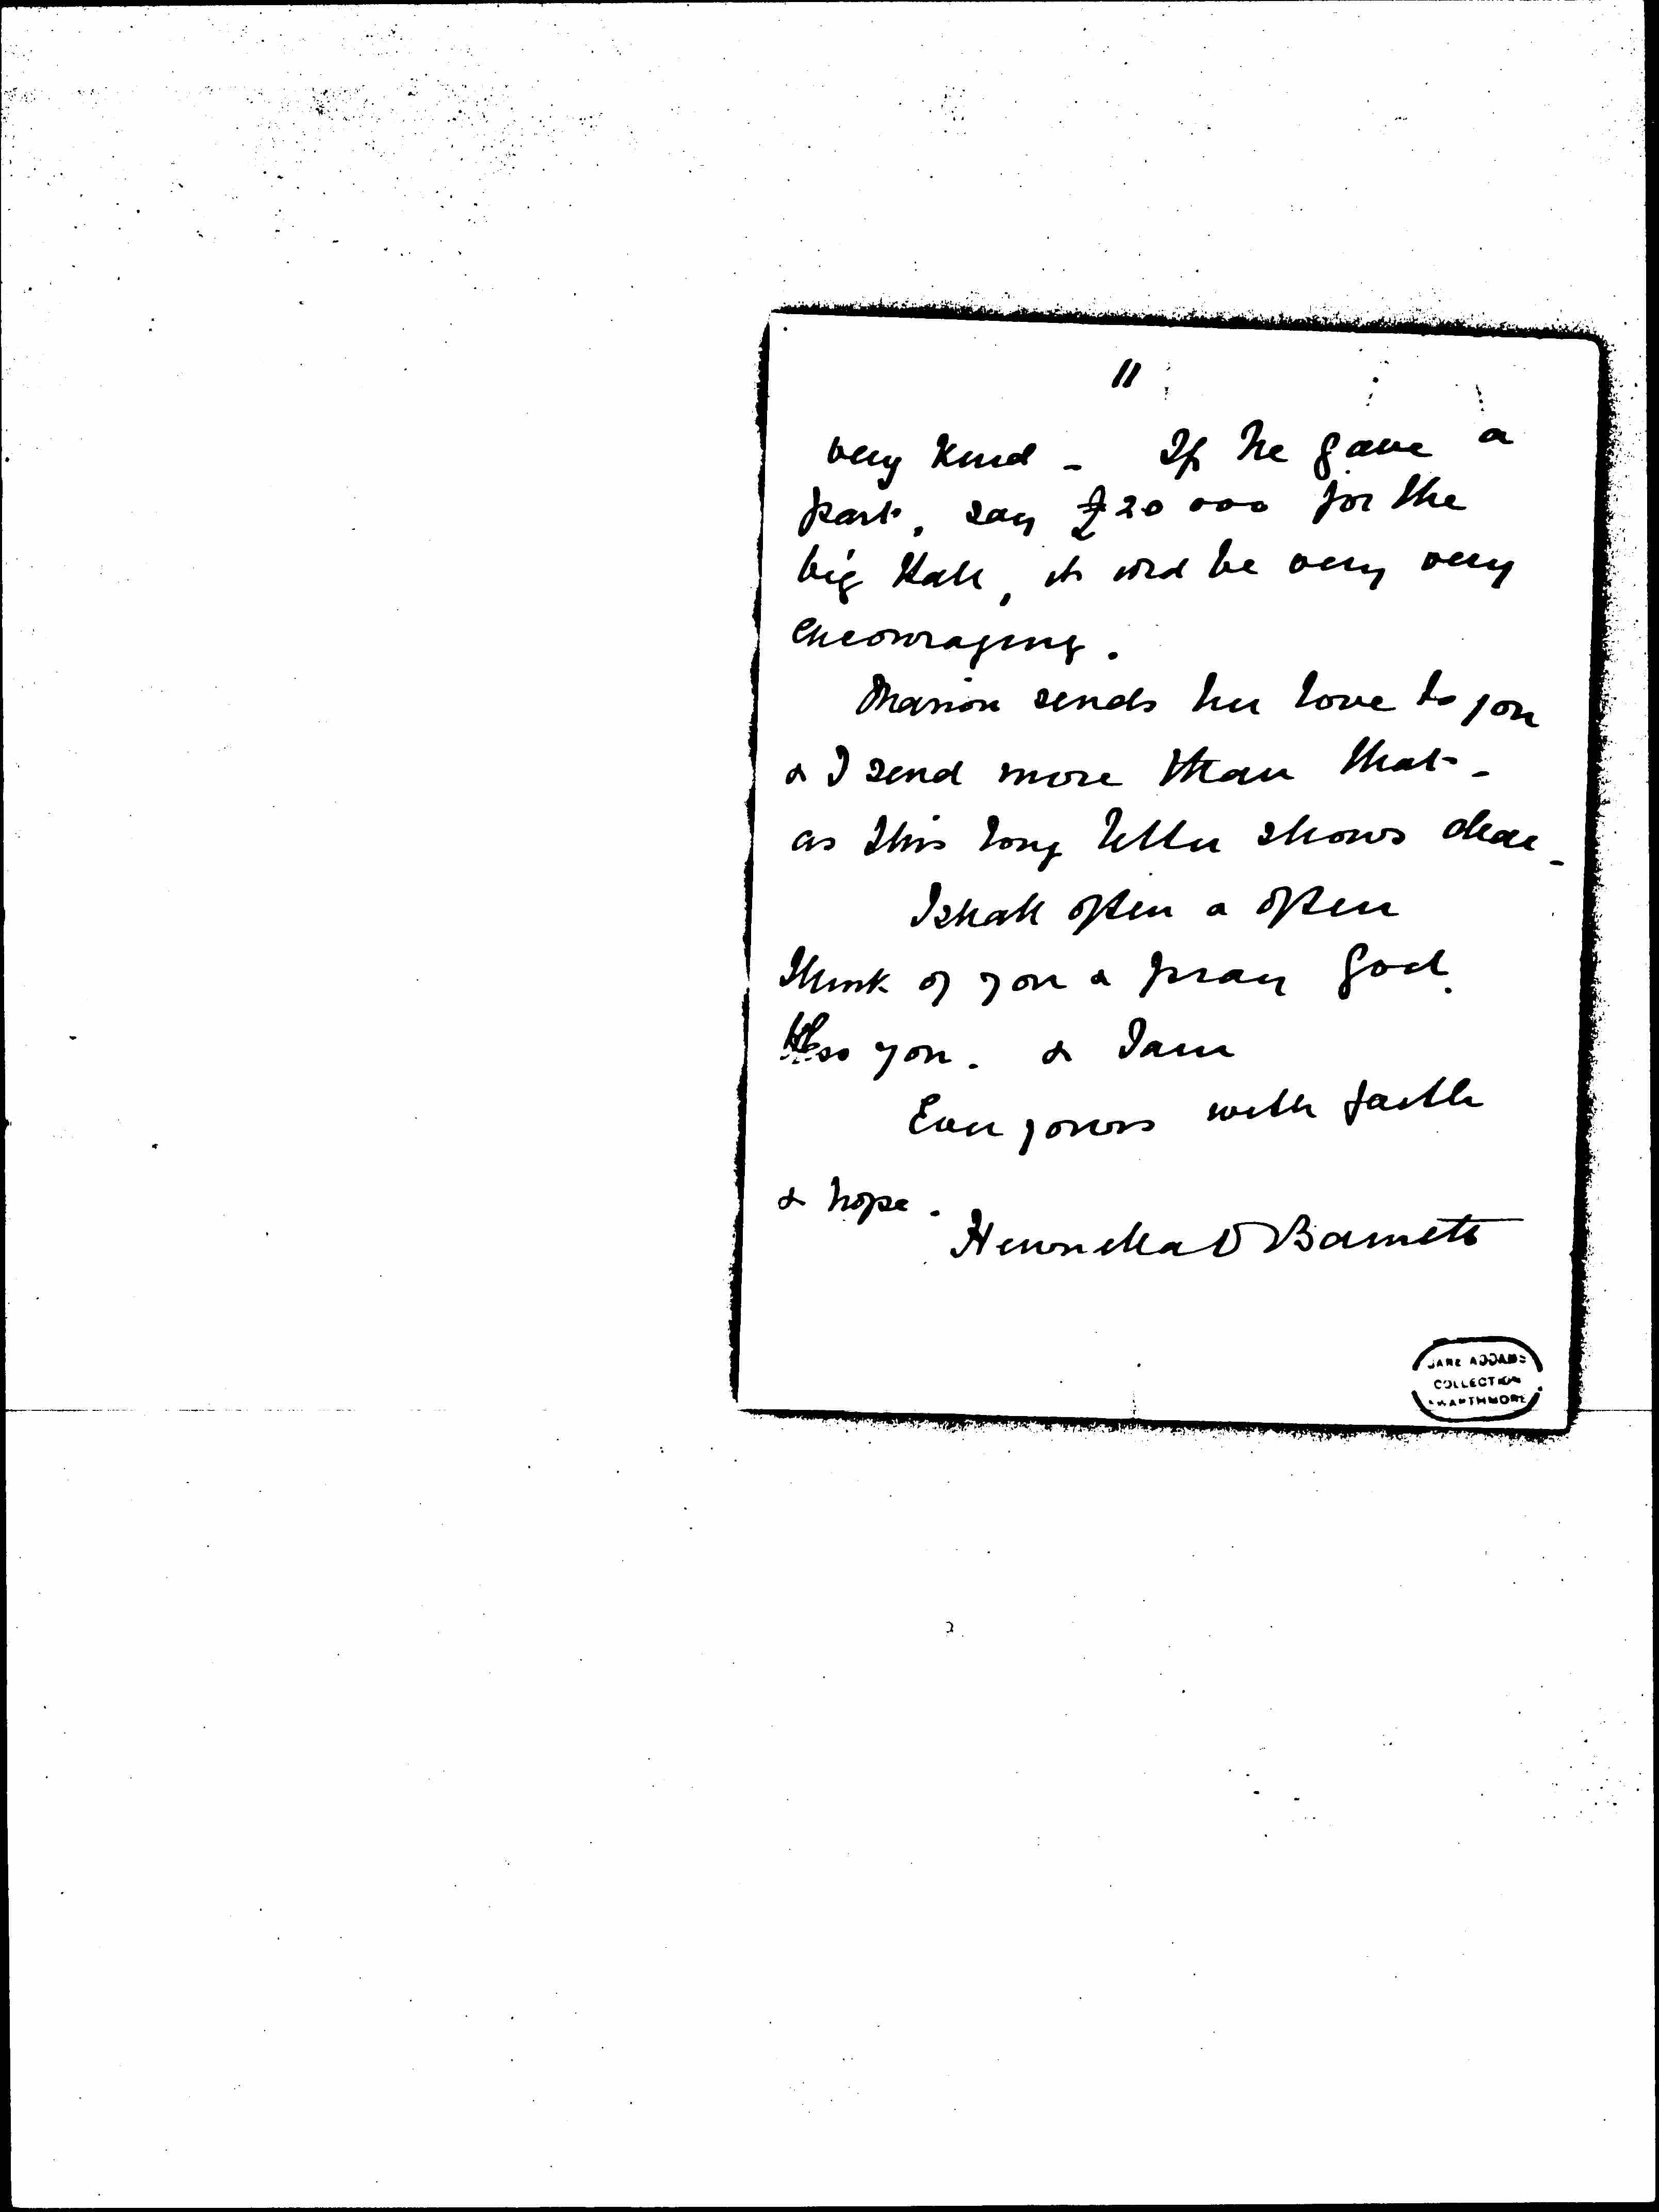 11
very kind - If he gave a
part, say £20 000 for the
big Hall, it wd be very very
encouraging.
Marion sends her love to you
& I send more than that -
as this long letter shows dear -
I shall often & often
think of you & pray God
bless you. & I am
Ever yours with faith
& hope.
Henrietta O Barnett
JANE ADDAMS
COLLECTION
SWARTHMORE